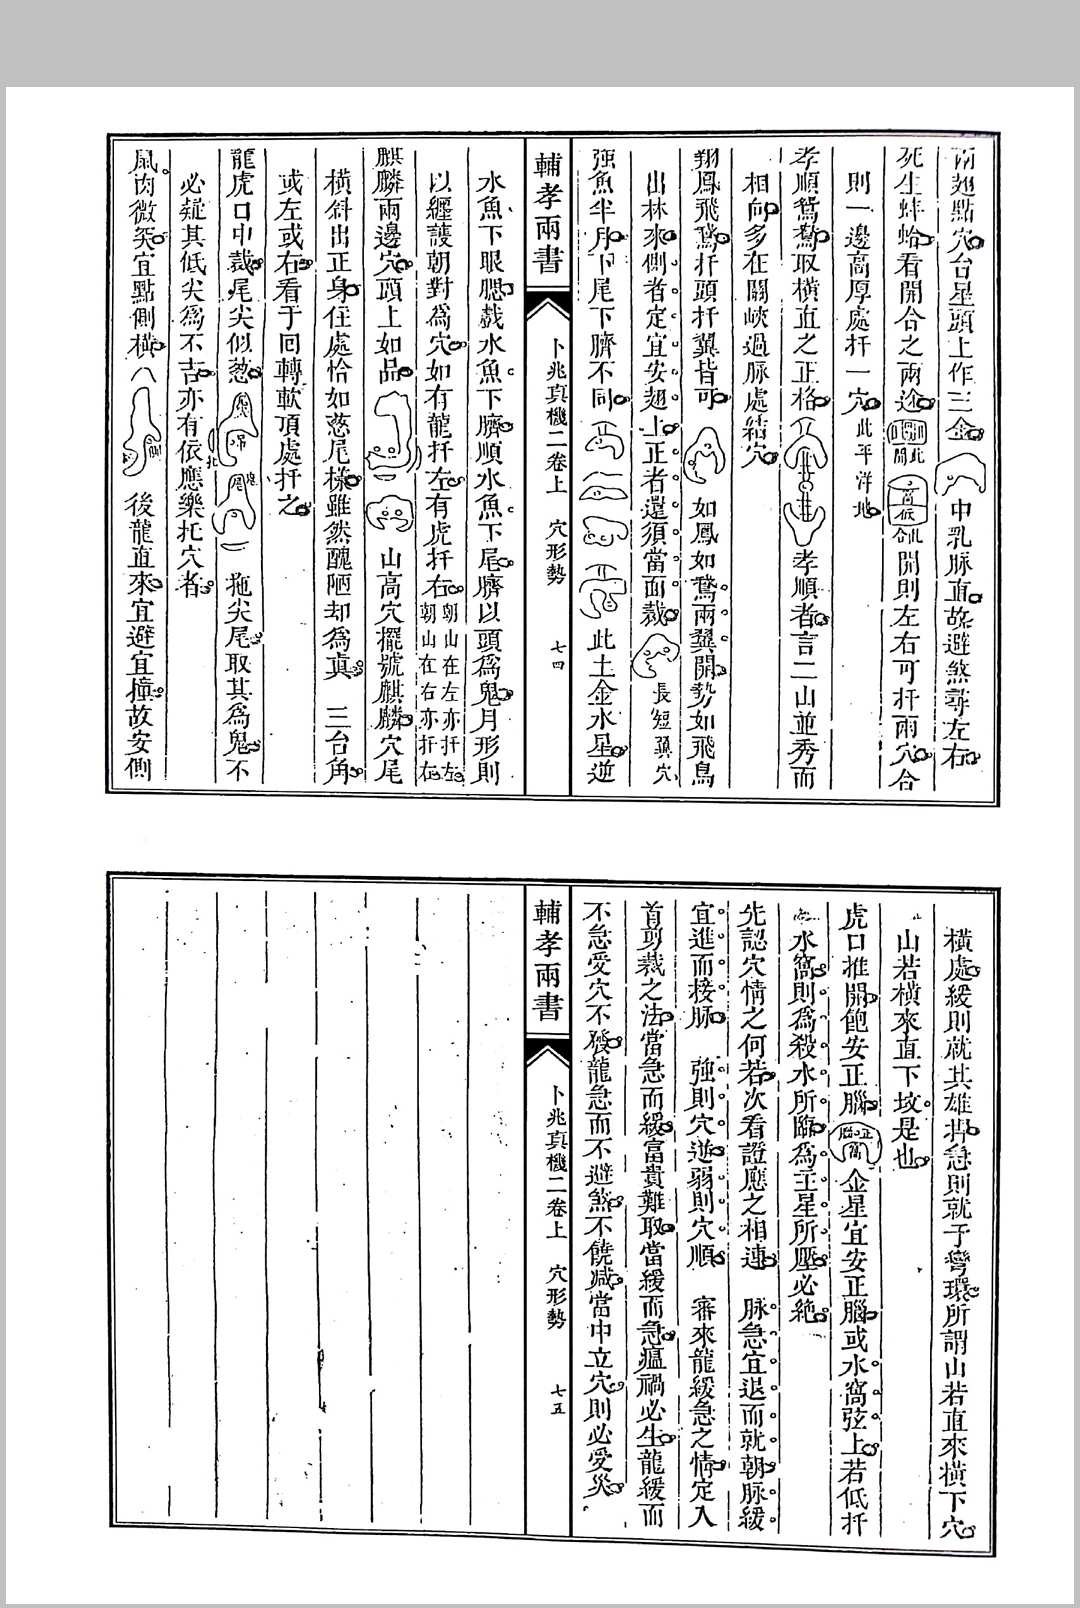 兩翅點穴台星頭上作三金 中乳脉直故避煞尋左右
死生蚌蛤看開合之兩途 開 北 高低 合 北 開則左右可扦兩穴合
則一邊高厚處扦一穴 此平洋地
孝順鴛鴦取橫直之正格 孝順者言二山並秀而
相向多在關峽過脉處結穴
翔鳳飛鵞扦頭扦翼皆可 如鳳如鵞兩翼開勢如飛鳥
出林來側者定宜安翅上正者還須當面裁 長短翼穴
強魚半月下尾下臍不同 此土金水星逆
輔孝兩書 卜兆真機二卷上 穴形勢 七四
水魚下眼腮戲水魚下臍順水魚下尾臍以頭為鬼月形則
以纏護朝對為穴如有龍扦左有虎扦右 朝山在左亦扦左 朝山在右亦扦右
麒麟兩邊穴頭上如品 山高穴擺號麒麟穴尾
橫斜出正身住處恰如葱尾樣雖然醜陋却為真 三台角
或左或右看于回轉軟頂處扦之
龍虎口中裁尾尖似葱 拖尖尾取其為鬼不
必疑其低尖為不吉亦有依應樂托穴者
鼠肉微筊宜點側橫 後龍直來宜避宜撞故安側
橫處緩則就其雄捍急則就于彎環所謂山若直來橫下穴
山若橫來直下坟是也
虎口推開飽安正腦 正腦窩 金星宜安正腦或水窩弦上若低扦
水窩則為殺水所臨為主星所壓必絶
先認穴情之何若次看證應之相連 脉急宜退而就朝脉緩
宜進而接脉 強則穴逆弱則穴順 審來龍緩急之情定入
首剪裁之法當急而緩富貴難取當緩而急瘟禍必生龍緩而
不急受穴不發龍急而不避煞不饒减當中立穴則必受災
輔孝兩書 卜兆真機二卷上 穴形勢 七五